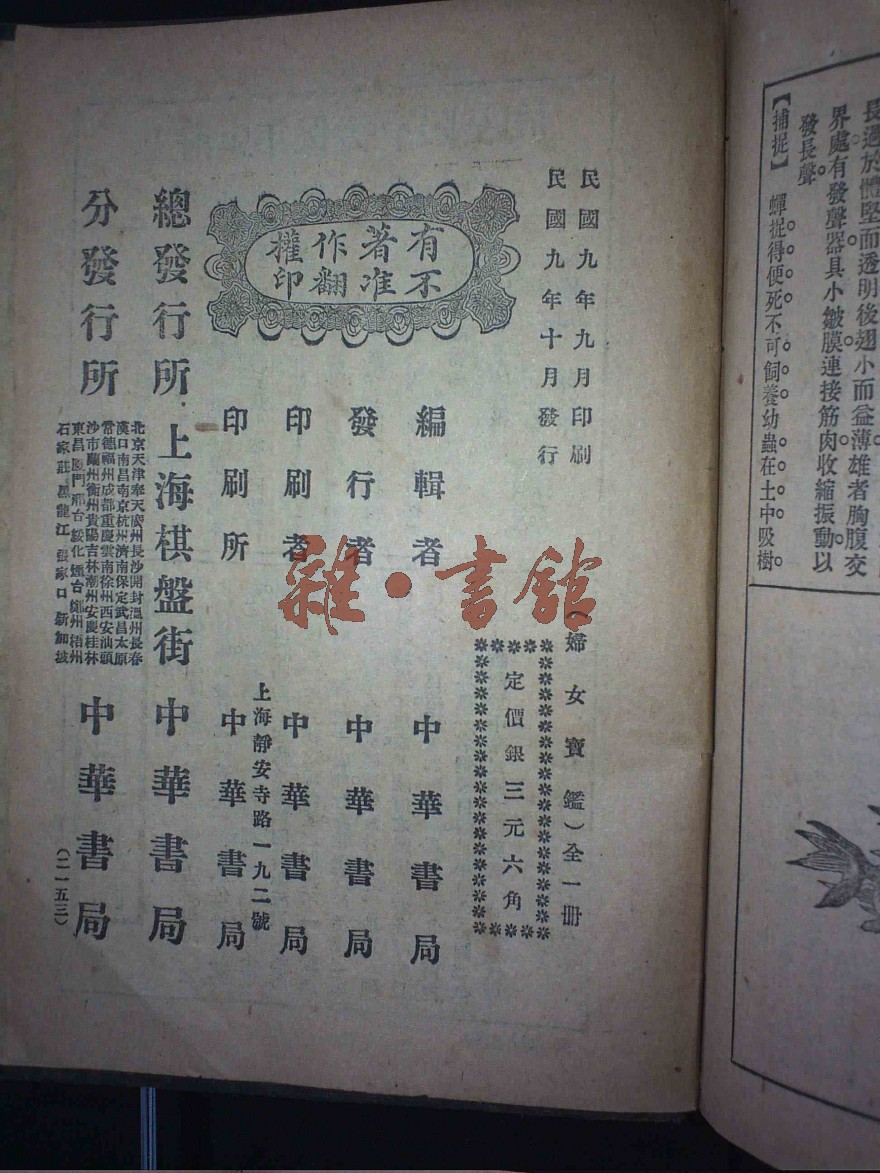 長過於體堅而透明後翅小而益薄雄者胸腹交
界處有發聲器具小皺膜連接筋肉收縮振動以
發長聲。
【捕捉】　蟬捉得便死不可飼養幼蟲在土中吸樹。
民國九年九月印刷
民國九年十月發行
（婦女寶鑑）全一冊
定價銀三元六角
有著作權
不准翻印
編輯者　中華書局
發行者　中華書局
印刷者　中華書局
上海靜安寺路一九二號
印刷所　中華書局
總發行所　上海棋盤街　中華書局
分發行所
北京天津奉天廣州長沙開封溫州長春
漢口南昌南京杭州濟南保定武昌太原
常德福州成都重慶雲南徐州西安汕頭
沙市蘭州衡州貴陽吉林潮州安慶桂林
東昌廈門邢台綏化煙台鄭州梧州
石家莊黑龍江張家口新加坡
中華書局
（二一五三）
雜·書館